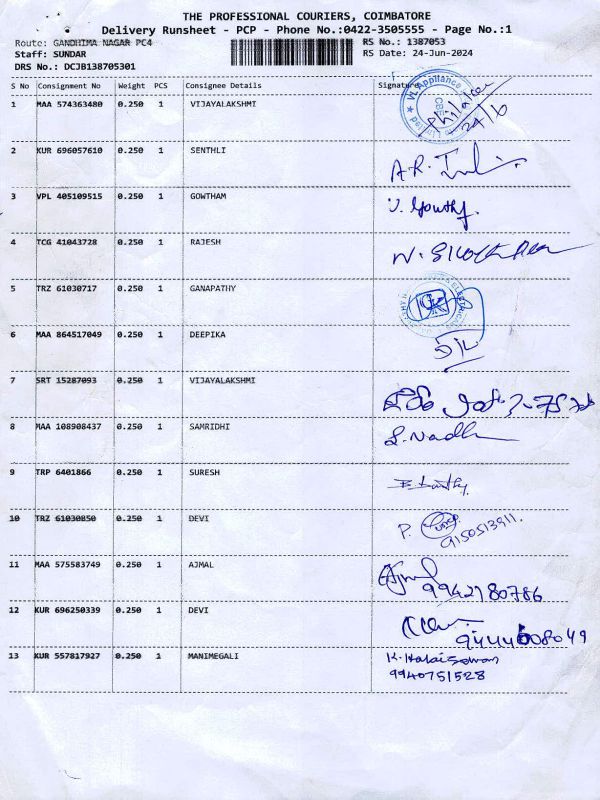 THE PROFESSIONAL COURIERS, COIMBATORE
Delivery Runsheet - PCP - Phone No.:0422-3505555 - Page No.:1
Route: GANDHIMA NAGAR PC4 RS No.: 1387053
Staff: SUNDAR RS Date: 24-Jun-2024
DRS No.: DCJB138705301
S No Consignment No Weight PCS Consignee Details Signature
1 MAA 574363480 0.250 1 VIJAYALAKSHMI
24/6
2 KUR 696057610 0.250 1 SENTHLI
3 VPL 405109515 0.250 1 GOWTHAM
4 TCG 41043728 0.250 1 RAJESH
5 TRZ 61030717 0.250 1 GANAPATHY
6 MAA 864517049 0.250 1 DEEPIKA
7 SRT 15287093 0.250 1 VIJAYALAKSHMI
8 MAA 108908437 0.250 1 SAMRIDHI S. Nadh
9 TRP 6401866 0.250 1 SURESH
10 TRZ 61030850 0.250 1 DEVI P.
9150513911.
11 MAA 575583749 0.250 1 AJMAL Ajmal
9942780786
12 KUR 696250339 0.250 1 DEVI
9444608049
13 KUR 557817927 0.250 1 MANIMEGALI
9940751528